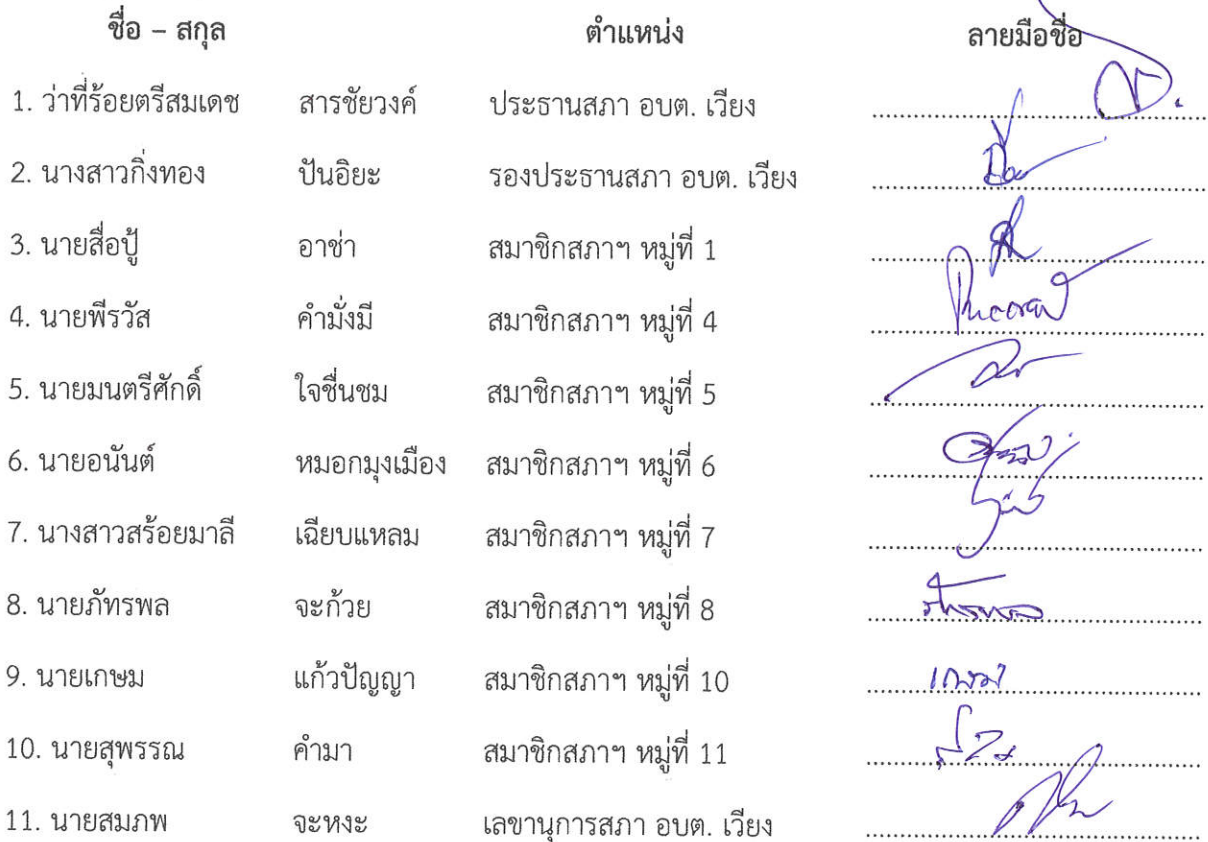 ชื่อ – สกุล ตำแหน่ง ลายมือชื่อ
1. ว่าที่ร้อยตรีสมเดช สารชัยวงค์ ประธานสภา อบต. เวียง
2. นางสาวกิ่งทอง ปันอิยะ รองประธานสภา อบต. เวียง
3. นายสื่อปู้ อาช่า สมาชิกสภาฯ หมู่ที่ 1
4. นายพีรวัส คำมั่งมี สมาชิกสภาฯ หมู่ที่ 4
5. นายมนตรีศักดิ์ ใจชื่นชม สมาชิกสภาฯ หมู่ที่ 5
6. นายอนันต์ หมอกมุงเมือง สมาชิกสภาฯ หมู่ที่ 6
7. นางสาวสร้อยมาลี เฉียบแหลม สมาชิกสภาฯ หมู่ที่ 7
8. นายภัทรพล จะก้วย สมาชิกสภาฯ หมู่ที่ 8
9. นายเกษม แก้วปัญญา สมาชิกสภาฯ หมู่ที่ 10 เกษม
10. นายสุพรรณ คำมา สมาชิกสภาฯ หมู่ที่ 11
11. นายสมภพ จะหงะ เลขานุการสภา อบต. เวียง